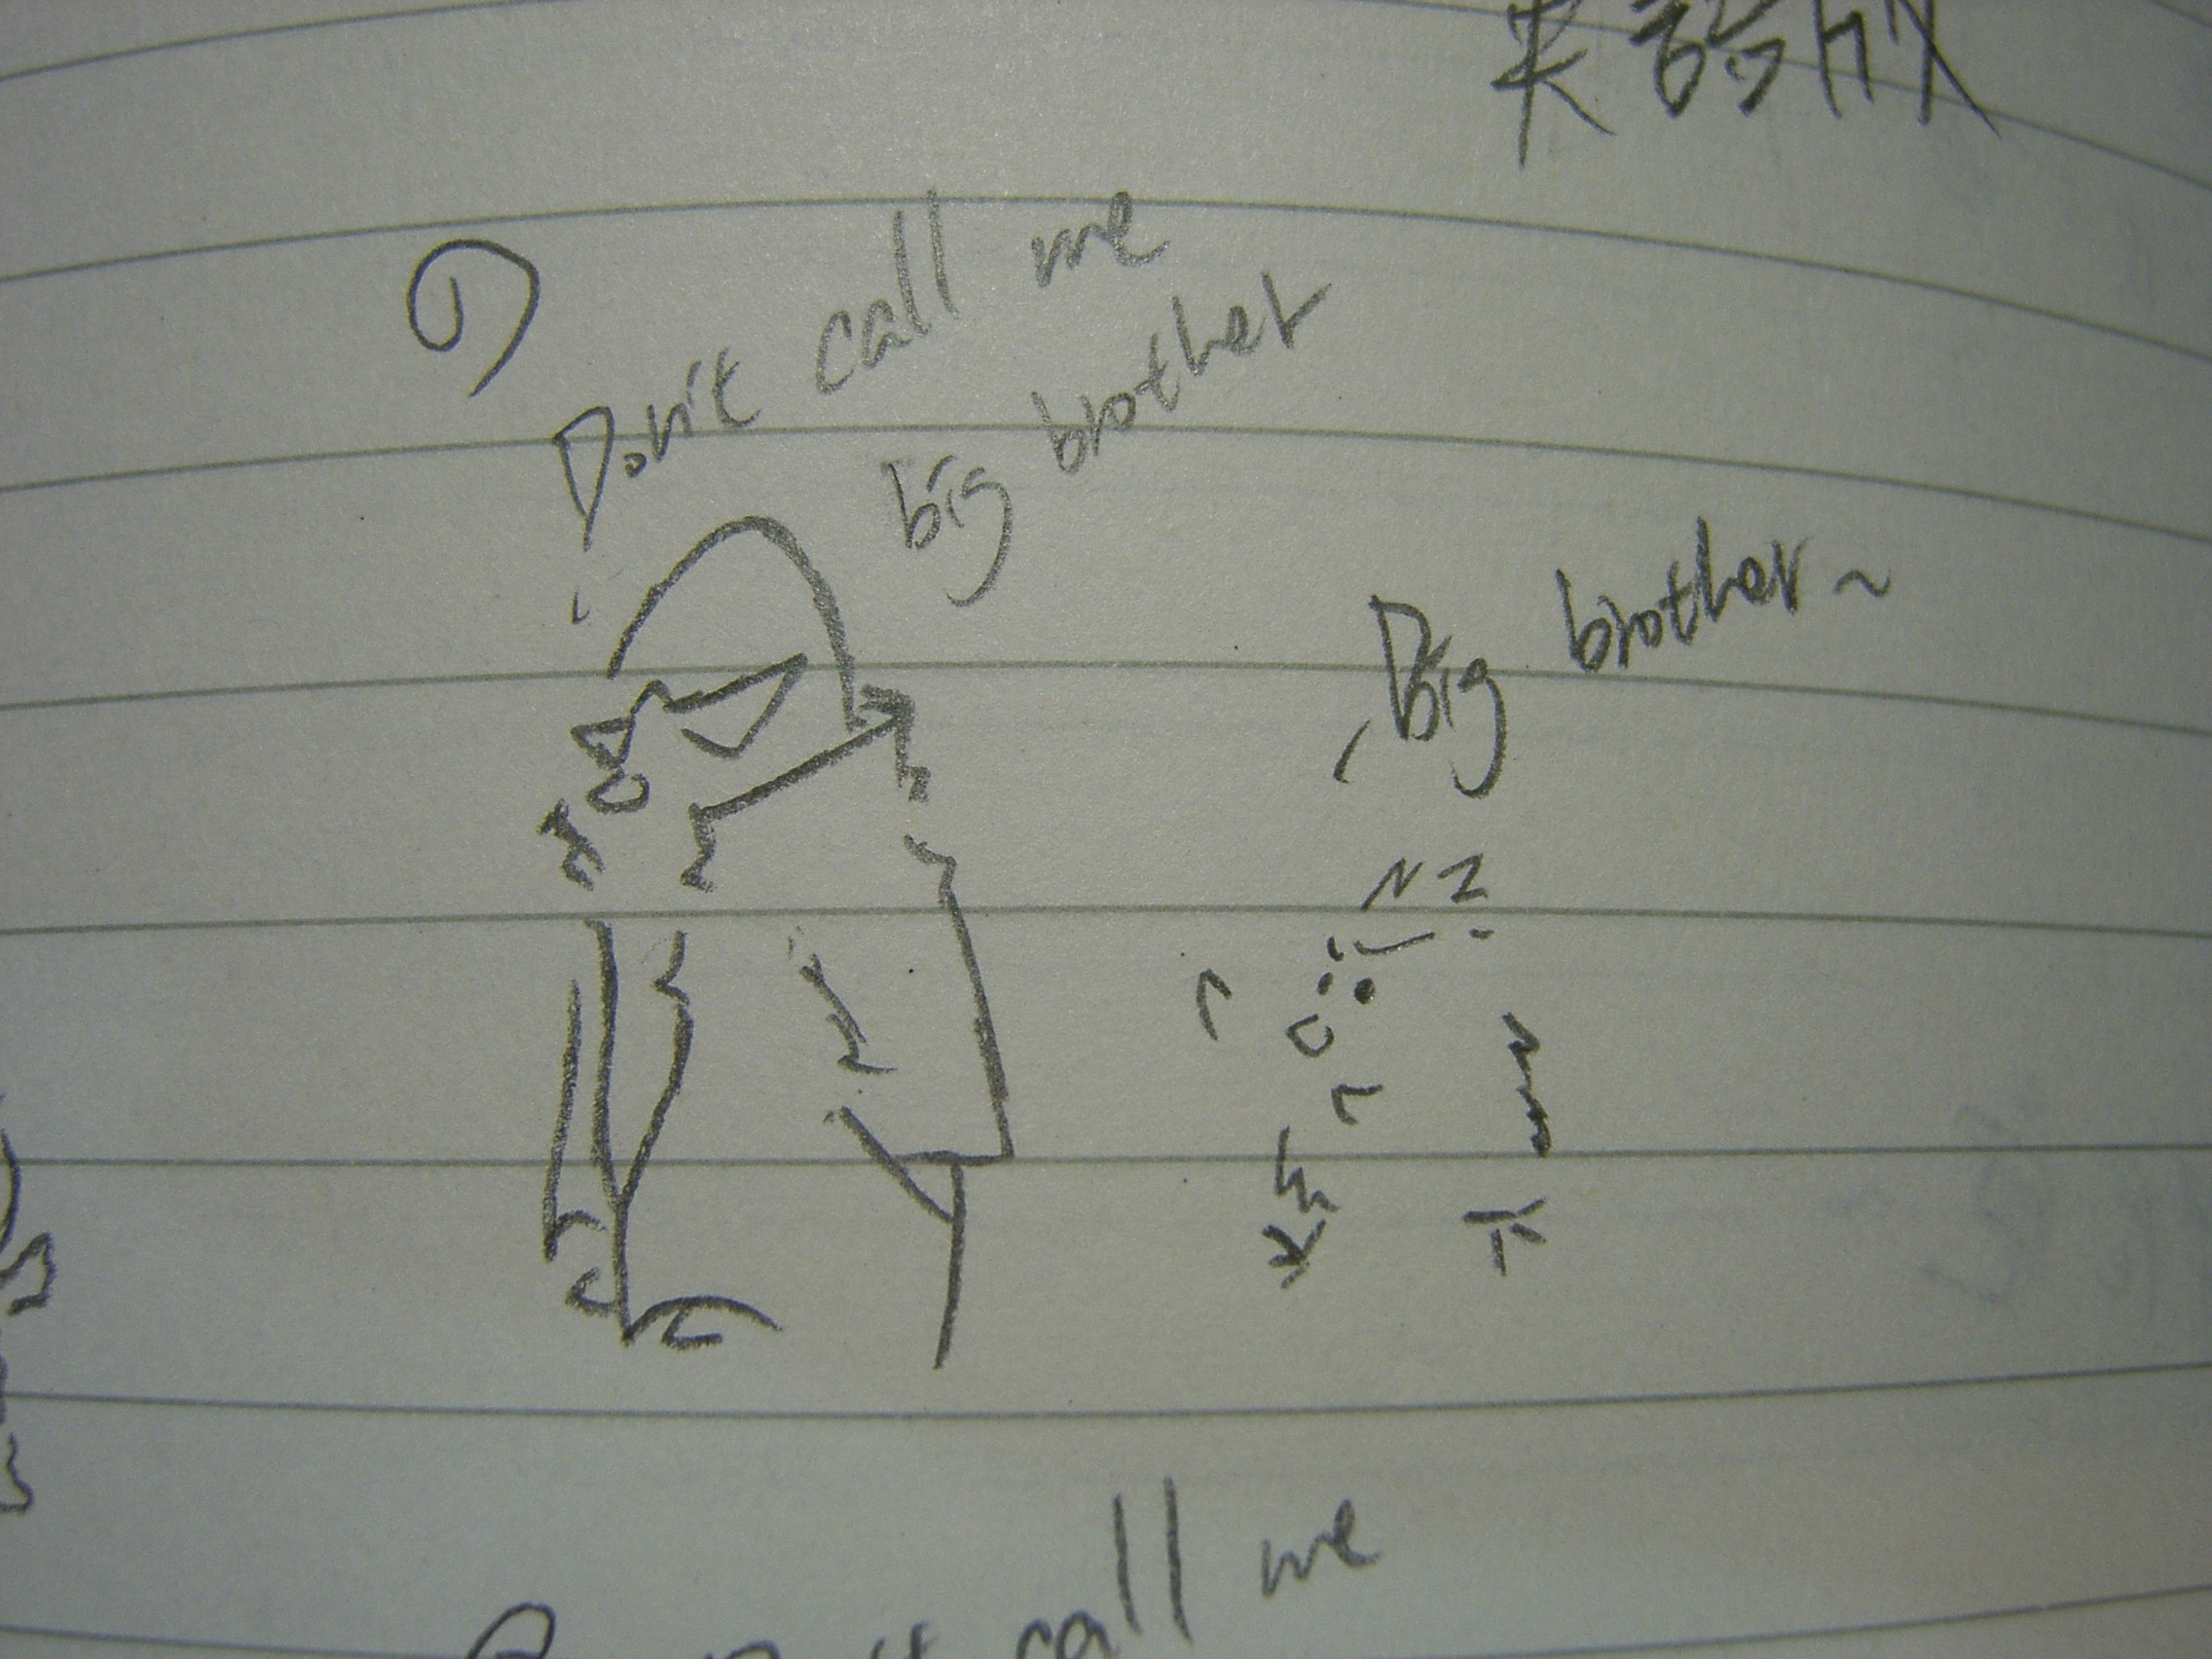 英語版
①
Don't call me
big brother
Big brother~
call me